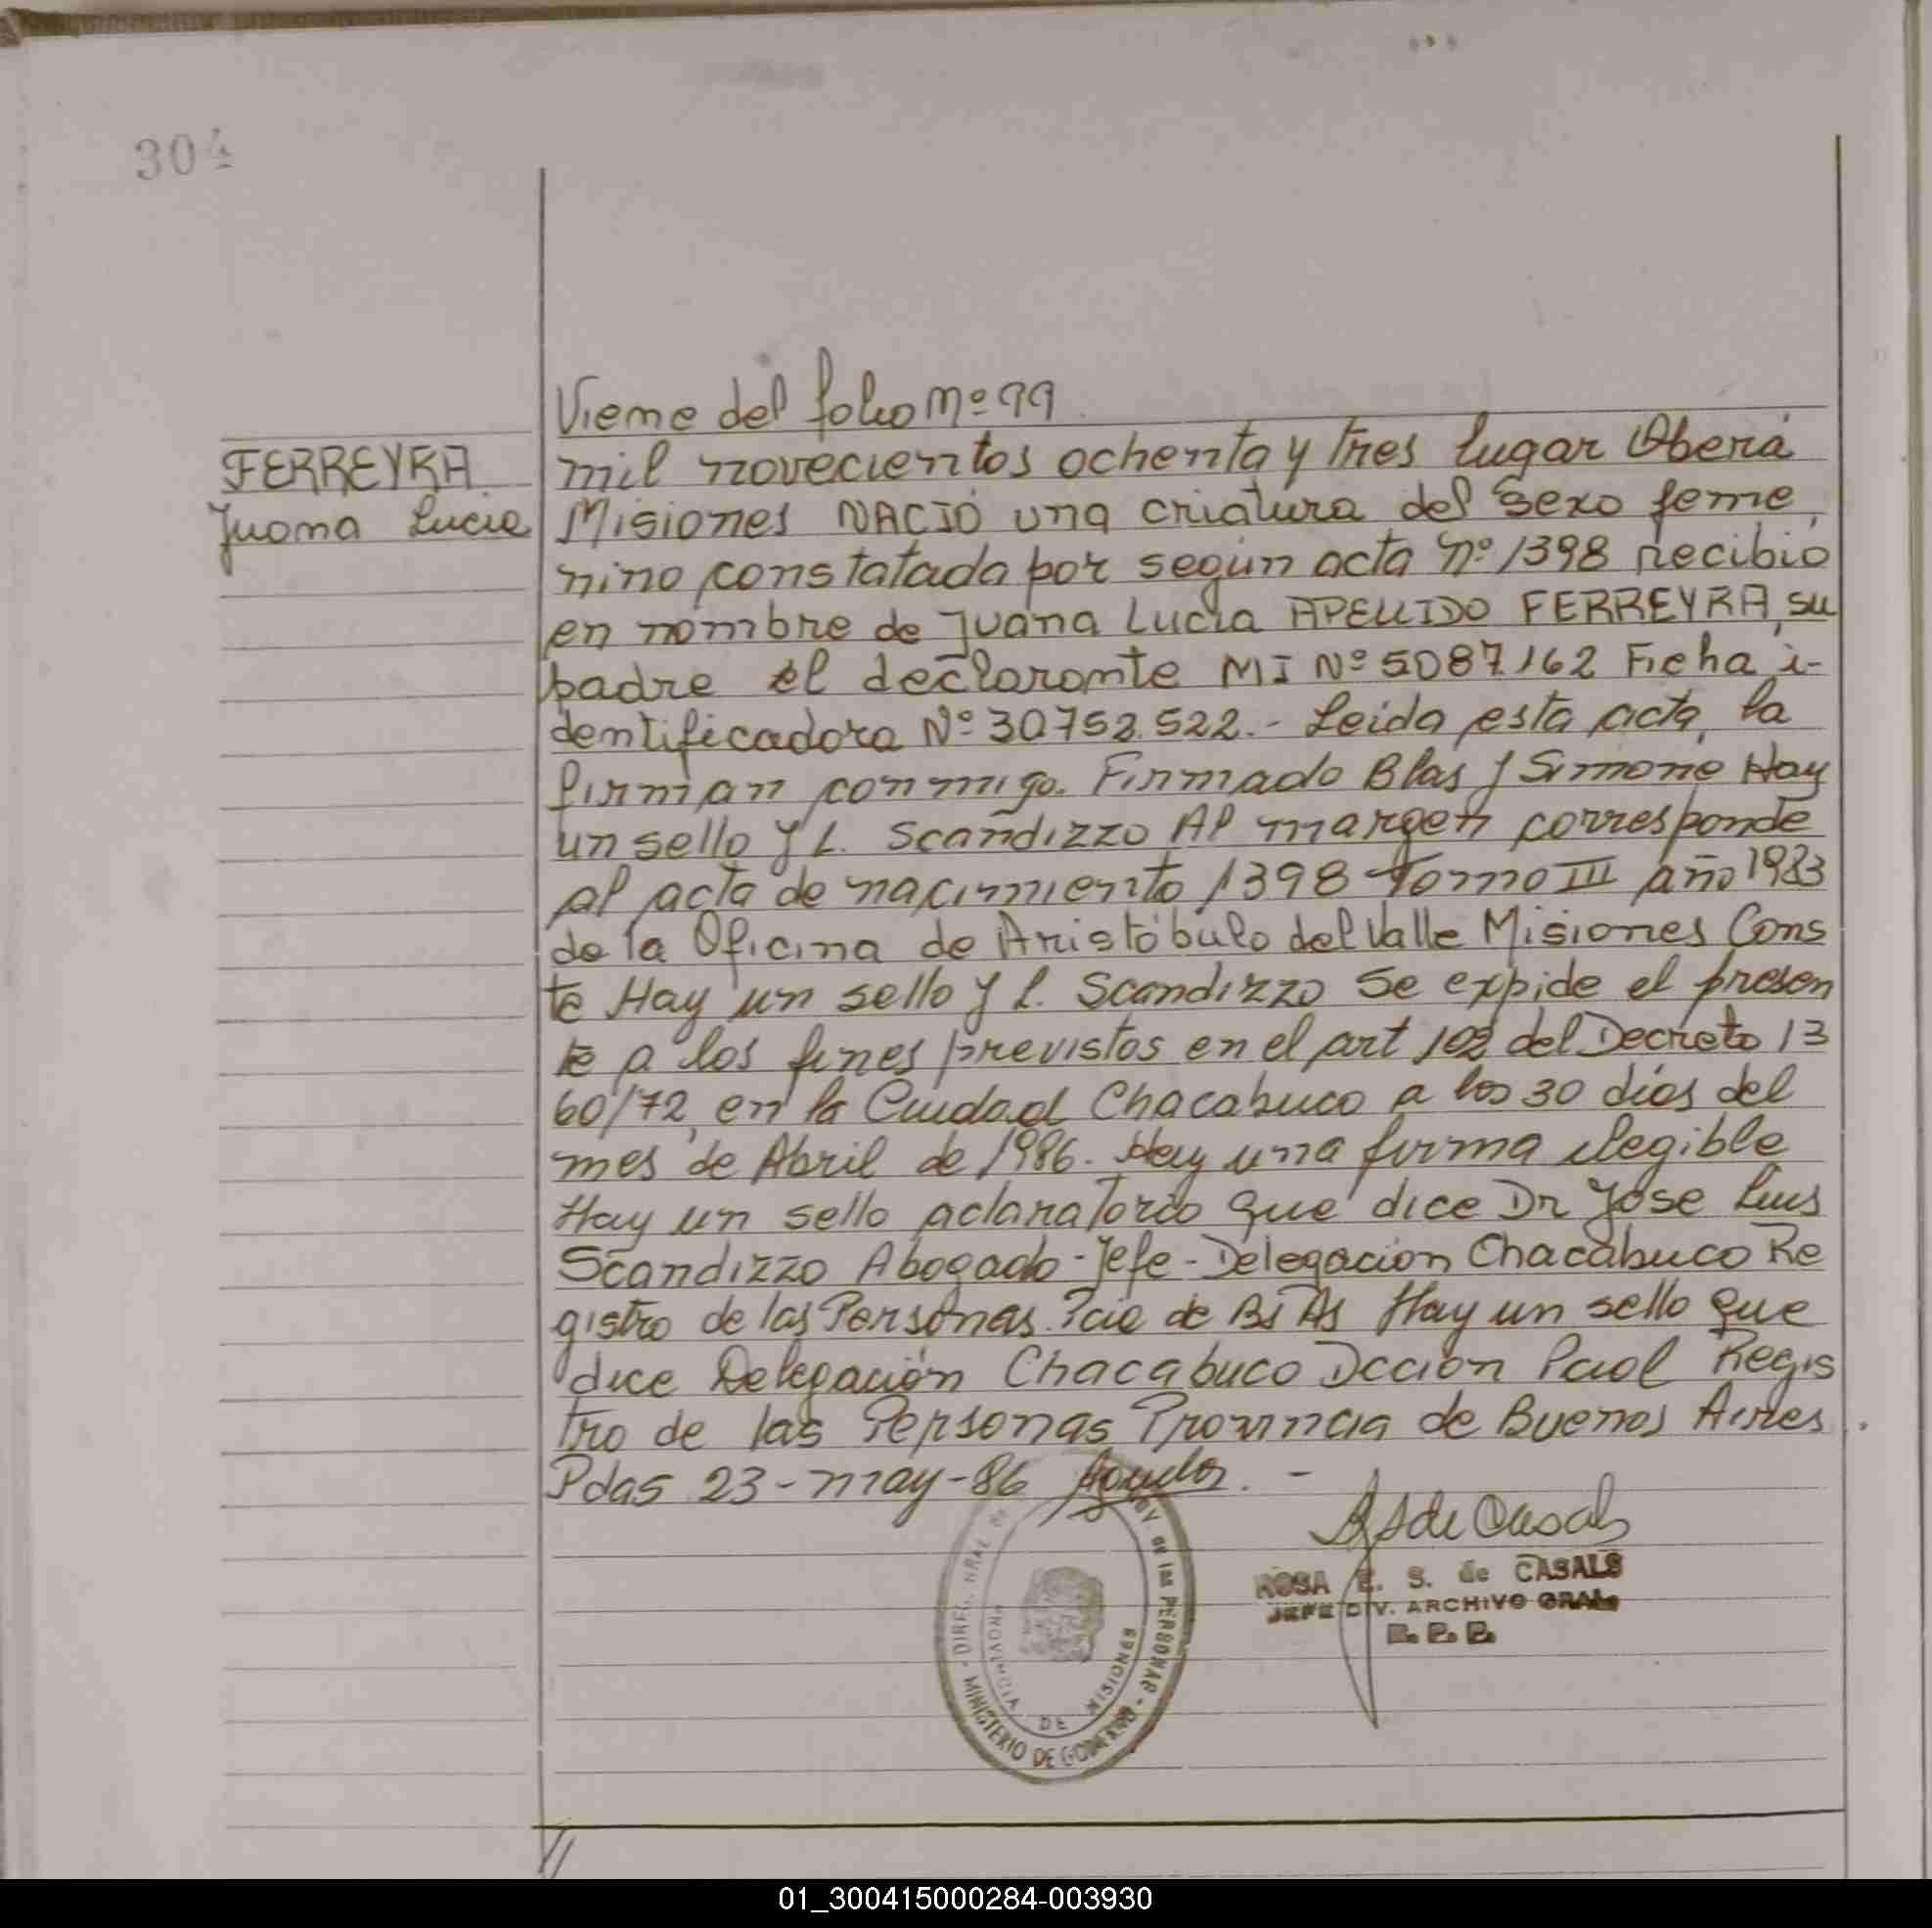 304
Viene del folio Nº 99
FERREYRA
Juana Lucia
mil novecientos ochenta y tres lugar Oberá
Misiones NACIÓ una criatura del sexo feme
nino constatada por según acta Nº 1398 recibio
en nombre de Juana Lucia APELLIDO FERREYRA, su
padre el declarante MI Nº 5087.162 Ficha i-
dentificadora Nº 30.752.522.- Leida esta acta, la
firman conmigo. Firmado Blas J Simone Hay
un sello J L. Scandizzo Al margen corresponde
al acta de nacimiento 1398 Tomo III año 1983
de la Oficina de Aristóbulo del Valle Misiones Cons
te Hay un sello J L. Scandizzo Se expide el presen
te a los fines previstos en el art 102 del Decreto 13
60/72, en la Ciudad Chacabuco a los 30 días del
mes de Abril de 1986. Hay una firma ilegible
Hay un sello aclaratorio que dice Dr Jose Luis
Scandizzo Abogado - Jefe - Delegación Chacabuco Re
gistro de las Personas. Pcia de Bs As Hay un sello que
dice Delegación Chacabuco Dccion Pcial Regis
tro de las Personas Provincia de Buenos Aires.
Pdas 23-may-86
ROSA E. S. de CASALS
JEFE DIV. ARCHIVO GRAL
MINISTERIO DE GOBIERNO - DE LAS PERSONAS
PROVINCIA DE MISIONES
01_300415000284-003930